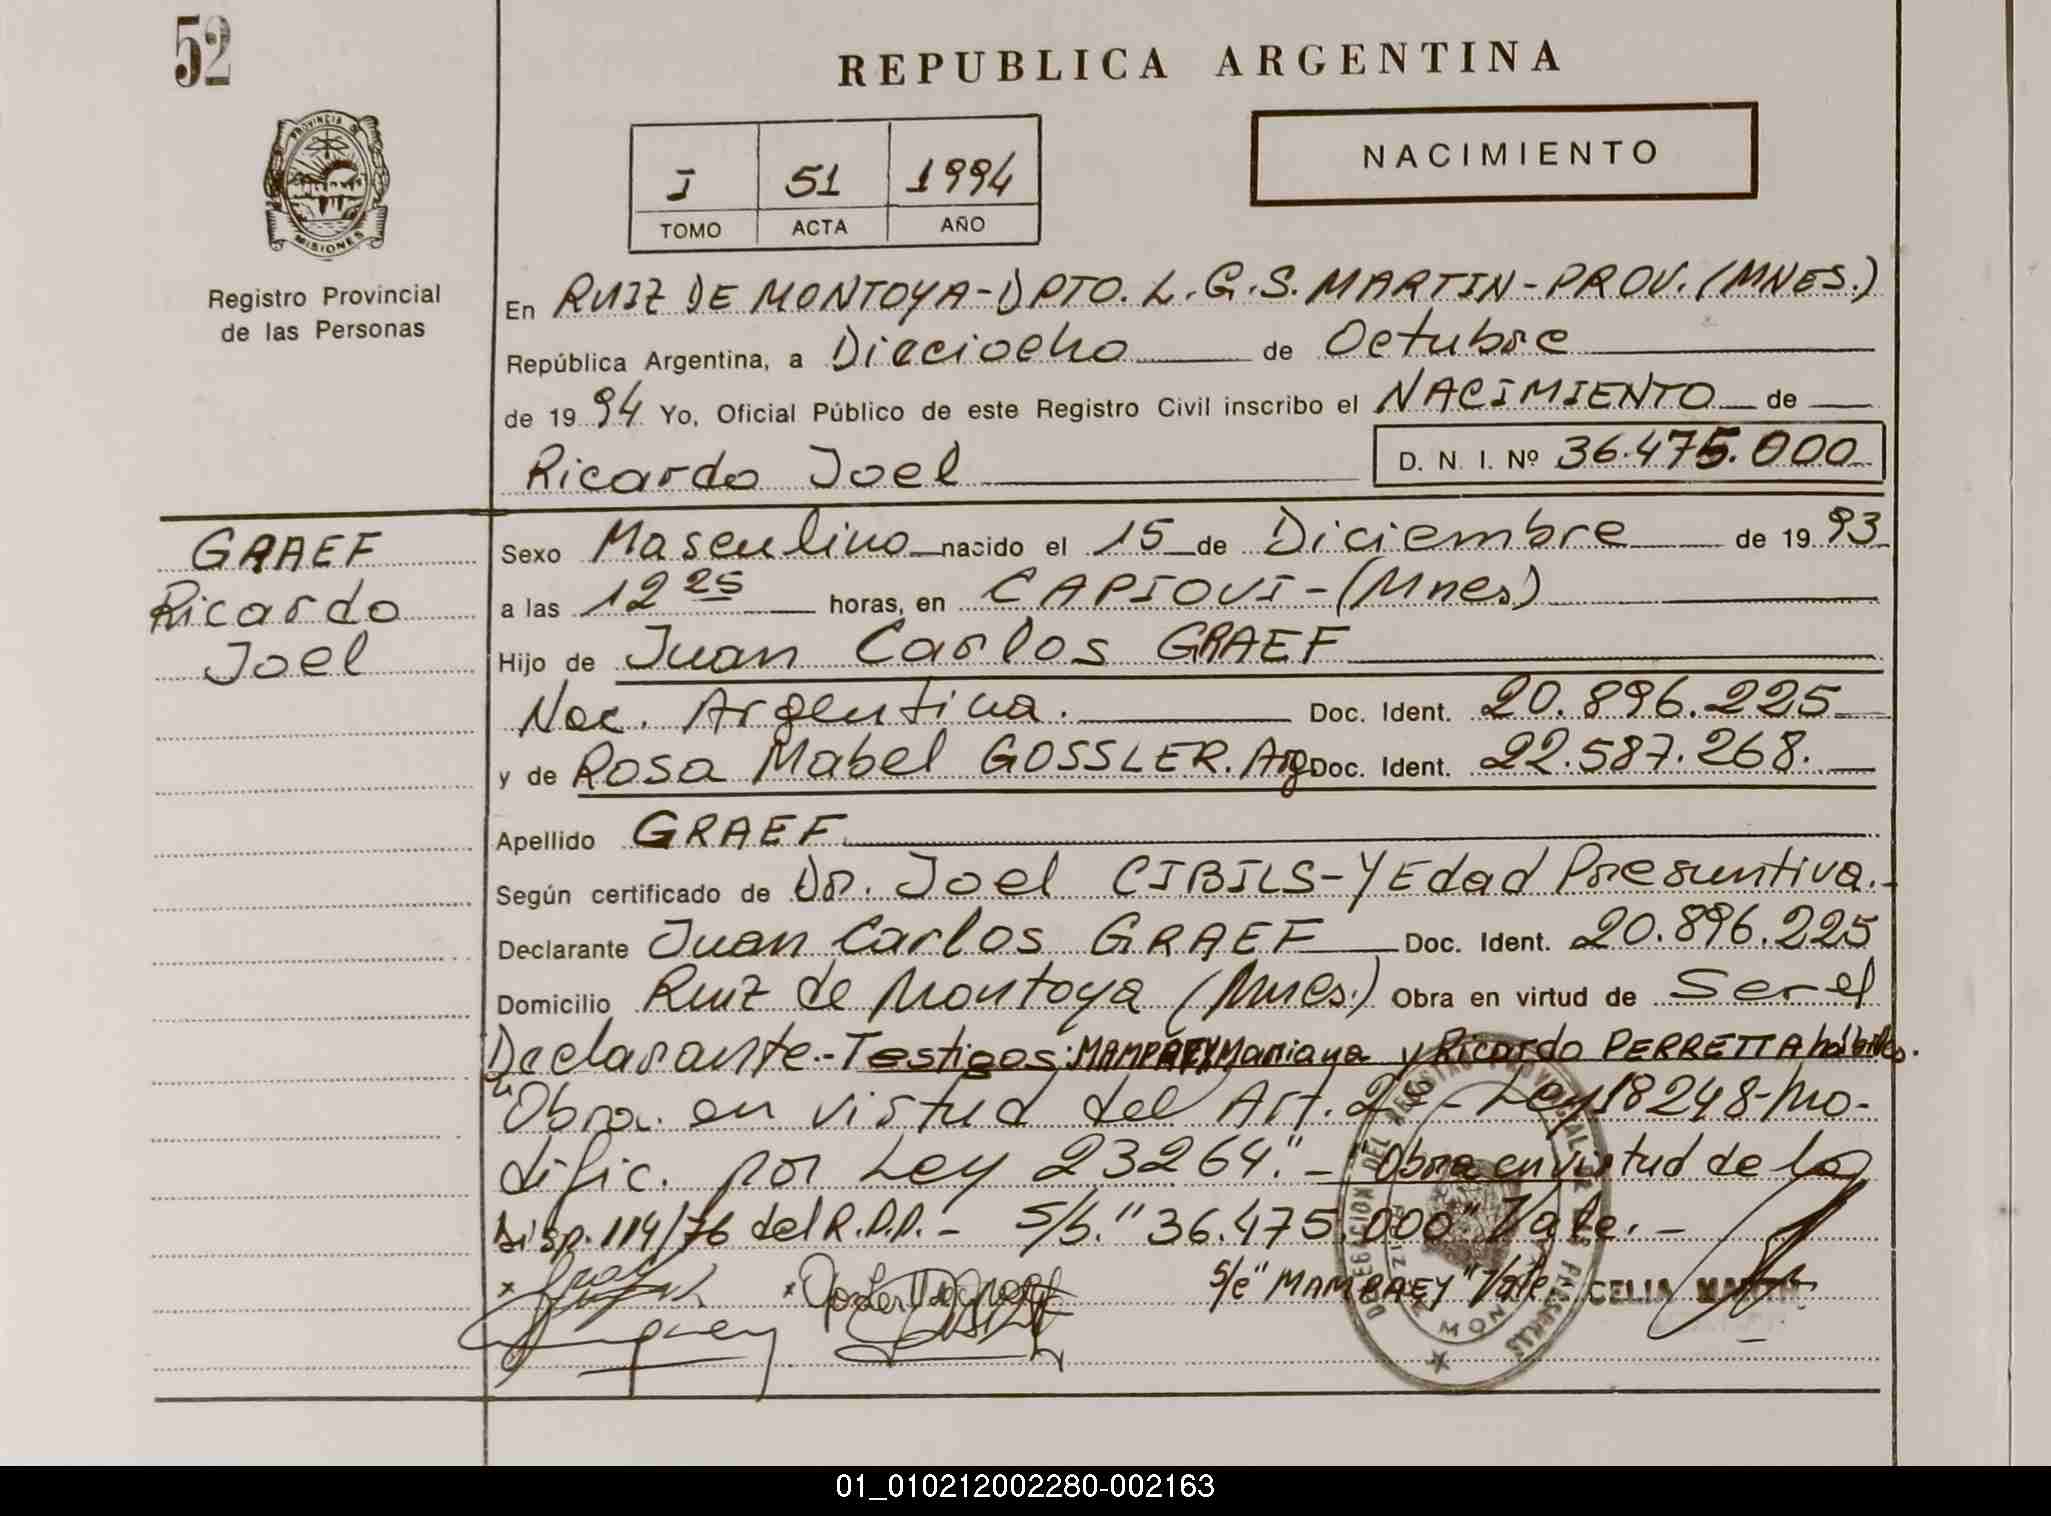 52
REPUBLICA ARGENTINA
PROVINCIA DE MISIONES
Registro Provincial
de las Personas
I 51 1994
TOMO ACTA AÑO
NACIMIENTO
En RUIZ DE MONTOYA-DPTO. L.G.S. MARTIN-PROV. (MNES.)
República Argentina, a Dieciocho de Octubre
de 1994 Yo, Oficial Público de este Registro Civil inscribo el NACIMIENTO de
Ricardo Joel D. N. I. Nº 36.475.000
GRAEF
Ricardo
Joel
Sexo Masculino nacido el 15 de Diciembre de 1993
a las 12 25 horas, en CAPIOVI-(Mnes)
Hijo de Juan Carlos GRAEF
Nac. Argentina. Doc. Ident. 20.896.225
y de Rosa Mabel GOSSLER. Arg Doc. Ident. 22.587.268.
Apellido GRAEF
Según certificado de Dr. Joel CIBILS-Y Edad Presuntiva.-
Declarante Juan Carlos GRAEF Doc. Ident. 20.896.225
Domicilio Ruiz de Montoya (Mnes.) Obra en virtud de Ser el
Declarante.-Testigos: Mariana y Ricardo PERRETTA hábiles.
"Obra en virtud del Art. 2º - Ley 18248-Mo-
dific. por Ley 23264."- "Obra en virtud de la
Disp. 114/76 del R.P.P.- S/b. "36.475.000" Vale.-
S/e "MAMPAEY" Vale.
CELIA
DIRECCION DEL REGISTRO PROVINCIAL DE LAS PERSONAS
01_010212002280-002163